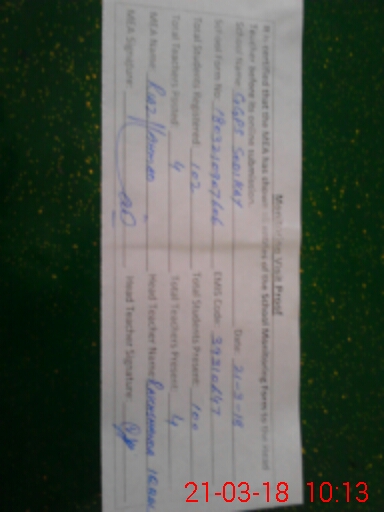 Monitoring Visit Proof
It is certified that the MEA has shown all entries of the School Monitoring Form to the Head
Teacher before its online submission.
School Name: GGPS Date: 21-3-18
School Form No: EMIS Code: 39310647
Total Students Registered: 102 Total Students Present: 100
Total Teachers Posted: 4 Total Teachers Present: 4
MEA Name: Riaz Head Teacher Name:
MEA Signature: Head Teacher Signature:
21-03-18 10:13